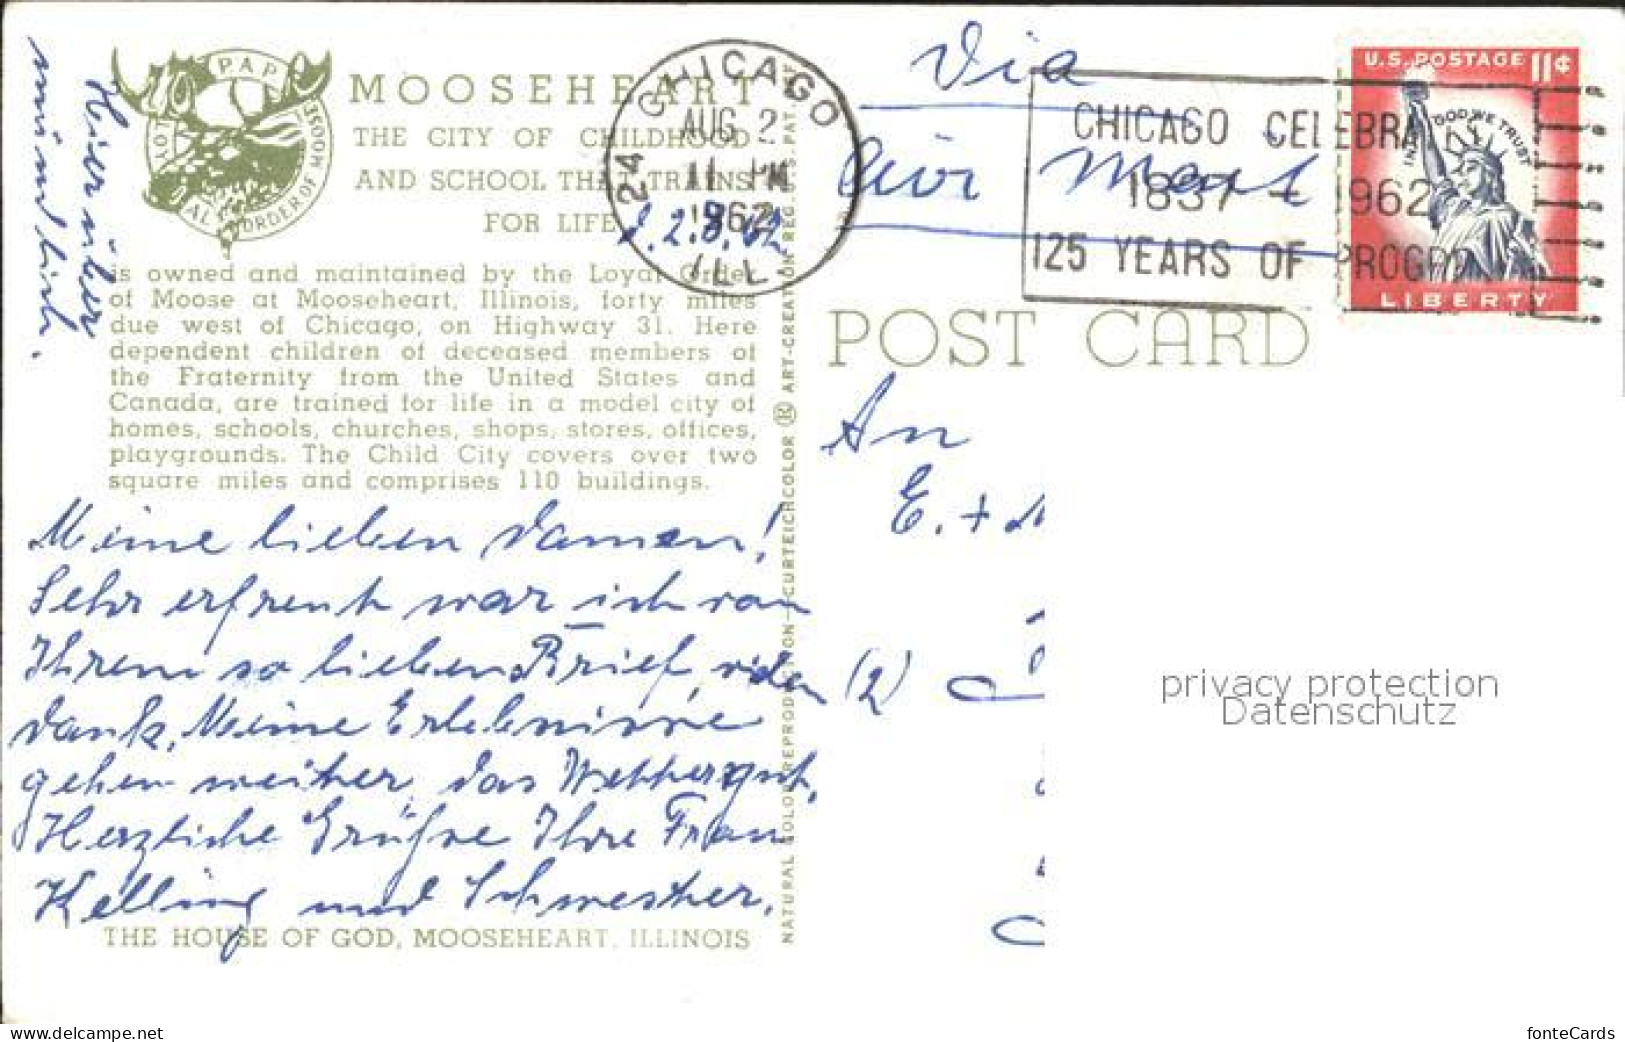 Hierüber
mündlich.
PAP
LOYAL ORDER OF MOOSE
MOOSEHEART
THE CITY OF CHILDHOOD
AND SCHOOL THAT TRAINS
FOR LIFE
2.8.62
is owned and maintained by the Loyal Order
of Moose at Mooseheart, Illinois, forty miles
due west of Chicago, on Highway 31. Here
dependent children of deceased members of
the Fraternity from the United States and
Canada, are trained for life in a model city of
homes, schools, churches, shops, stores, offices,
playgrounds. The Child City covers over two
square miles and comprises 110 buildings.
Meine lieben Damen!
Sehr erfreut war ich von
Ihrem so lieben Brief, vielen
Dank. Meine Erlebnisse
gehen weiter, das Wetter gut.
Herzliche Grüße Ihre Frau
Kelling und Schwester.
THE HOUSE OF GOD, MOOSEHEART, ILLINOIS
NATURAL COLOR REPRODUCTION—CURTEICHCOLOR ® ART-CREATION REG. U.S. PAT. OFF
CHICAGO
24
AUG 2
11 PM
1962
ILL
Via
Air Mail
CHICAGO CELEBRA
1837 – 1962
125 YEARS OF PROGR
U.S. POSTAGE 11¢
IN GOD WE TRUST
LIBERTY
POST CARD
An
E. +
(2)
privacy protection
Datenschutz
www.delcampe.net
fonteCards